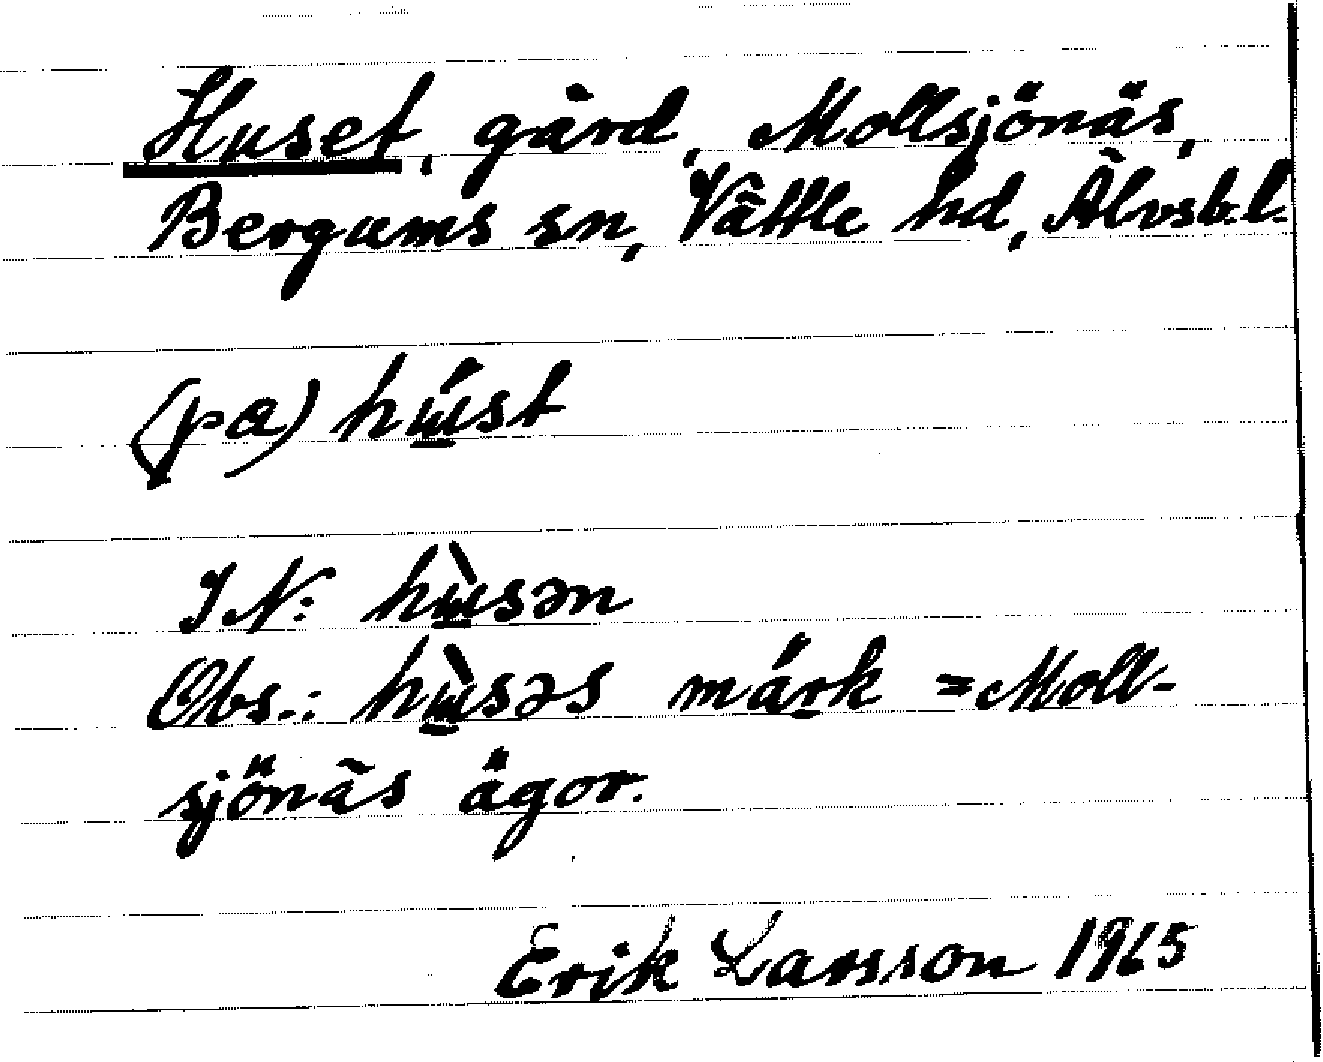 Huset, gård, Mollsjönäs,
Bergums sn, Vättle hd, Älvsb.l.
(pa) hú̲st
IN: hù̲sən
Obs.: hù̲səs márk = Moll-
sjönäs ägor.
Erik Larsson 1965